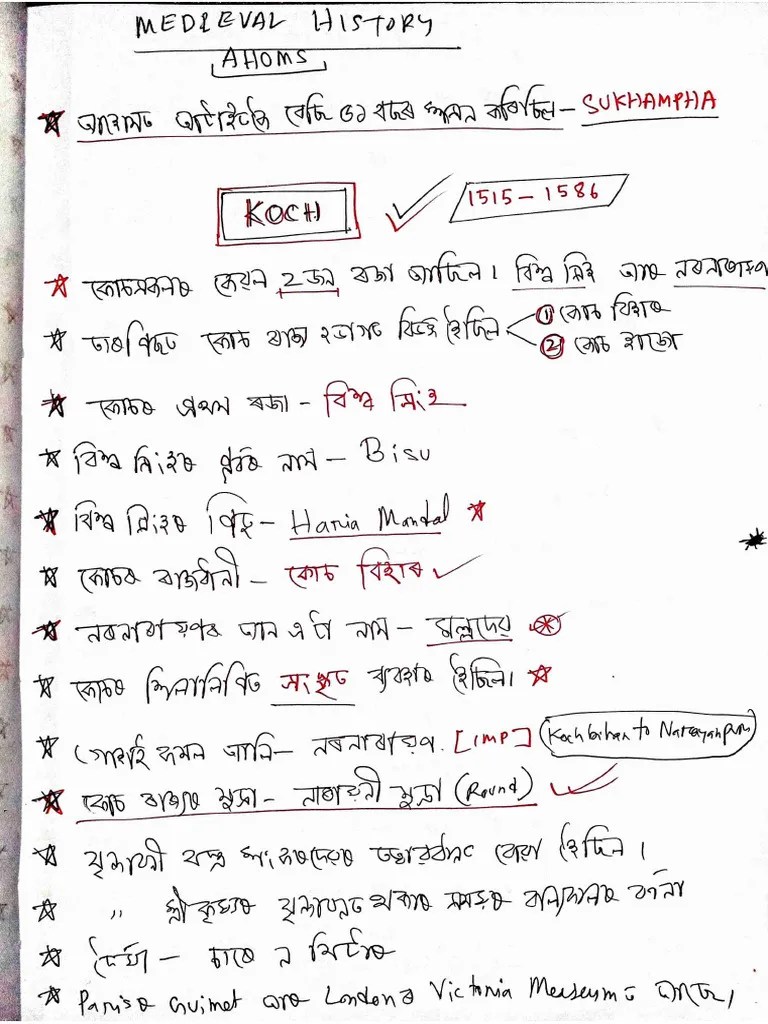 MEDIEVAL HISTORY
AHOMS
আহোমত আটাইতকৈ বেছি ৫১ বছৰ শাসন কৰিছিল – SUKHAMPHA
KOCH
1515 – 1586
কোচসকলৰ কেৱল 2জন ৰজা আছিল। বিশ্ব সিংহ আৰু নৰনাৰায়ণ
তাৰপিছত কোচ ৰাজ্য ২ভাগত বিভক্ত হৈছিল
① কোচ বিহাৰ
② কোচ হাজো
কোচৰ প্ৰথম ৰজা – বিশ্ব সিংহ
বিশ্ব সিংহৰ পূৰ্বৰ নাম – Bisu
বিশ্ব সিংহৰ পিতৃ – Haria Mandal
কোচৰ ৰাজধানী – কোচ বিহাৰ
নৰনাৰায়ণৰ আন এটা নাম – মল্লদেৱ
কোচৰ শিলালিপিত সংস্কৃত ব্যৱহাৰ হৈছিল।
গোহাঁই কমল আলি – নৰনাৰায়ণ. [IMP] (Koch bihar to Narayanpur)
কোচ ৰাজ্যৰ মুদ্ৰা – নাৰায়নী মুদ্ৰা (Round)
বস্ত্ৰ শংকৰদেৱৰ তত্বাৱধানত বোৱা হৈছিল।
" শ্ৰীকৃষ্ণৰ থকাৰ সময়ৰ বাল্যকালৰ বৰ্ণনা
দৈৰ্ঘ্য – চাৰে ন মিটাৰ
Parisৰ Guimet আৰু Londonৰ Victoria Museumত আছে।